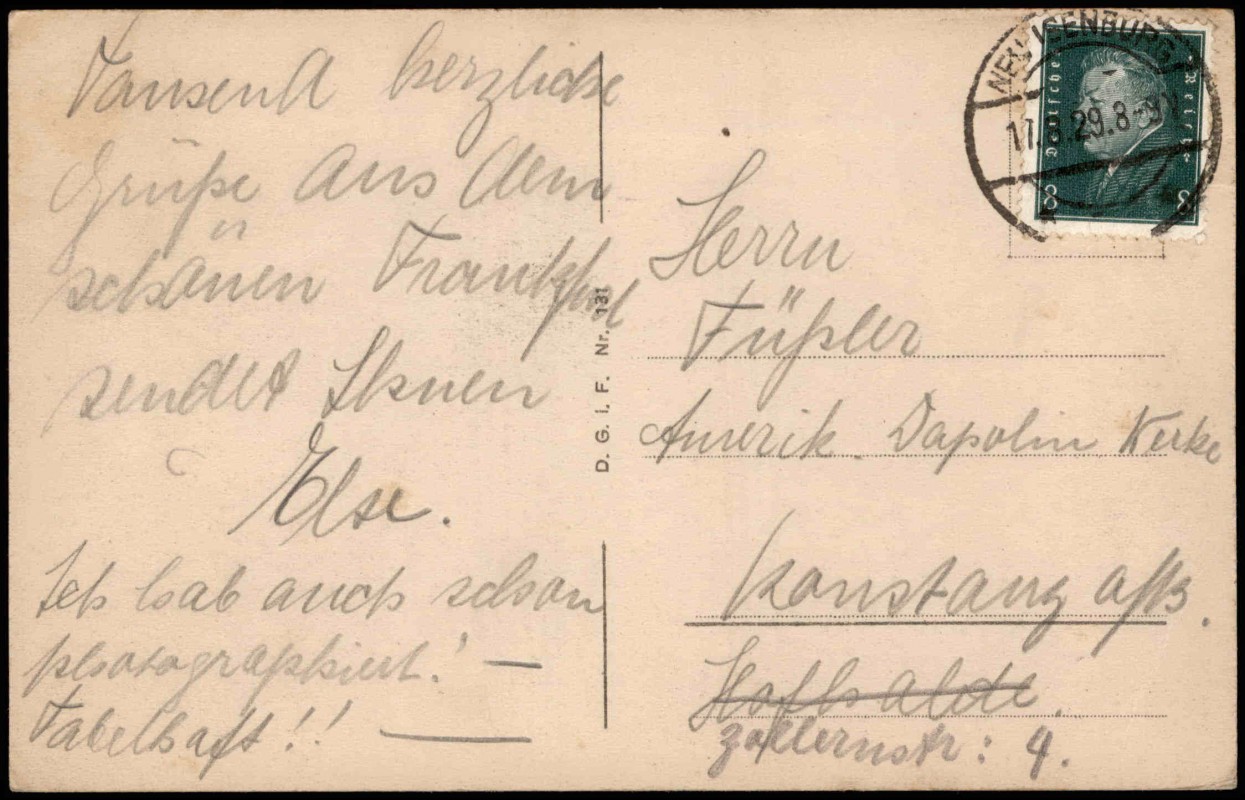 Tausend herzliche
Grüße aus dem
schönen Frankfurt
sendet Ihnen
Else.
Ich hab auch schon
photographiert! —
Fabelhaft!! —
D. G. I. F. Nr. 131
NEU ISENBURG
29.8-9V
Deutsches Reich
8 8
Herrn
Füßler
Amerik. Dapolin Werke
Konstanz a/B.
Hofhalde.
Zollernstr: 4.